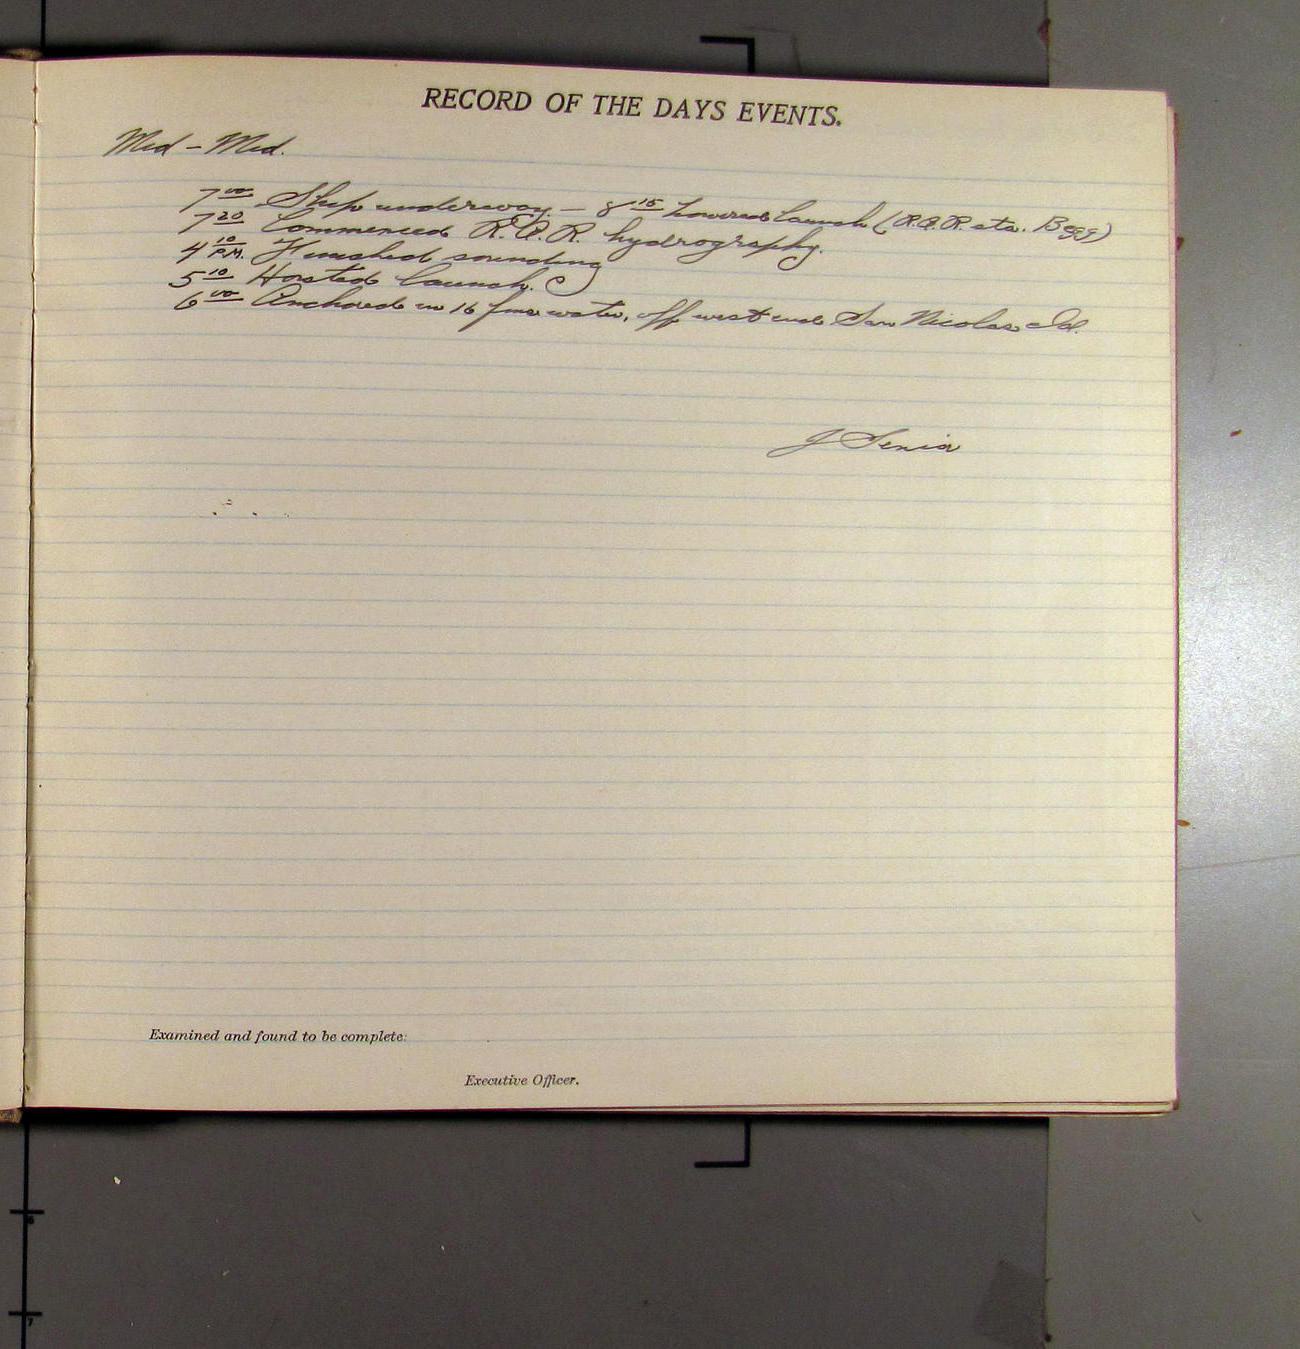 RECORD OF THE DAYS EVENTS.
Mid - Mid.
7 00 Ship underway - 8 15 Lowered launch (R.A.R. sta. Begg)
7 20 Commenced R.A.R. hydrography.
4 10 P.M. Finished sounding
5 10 Hoisted launch.
6 00 Anchored in 16 fms water, off west end San Nicolas Id.
J Senior
Examined and found to be complete:
Executive Officer.
6
7